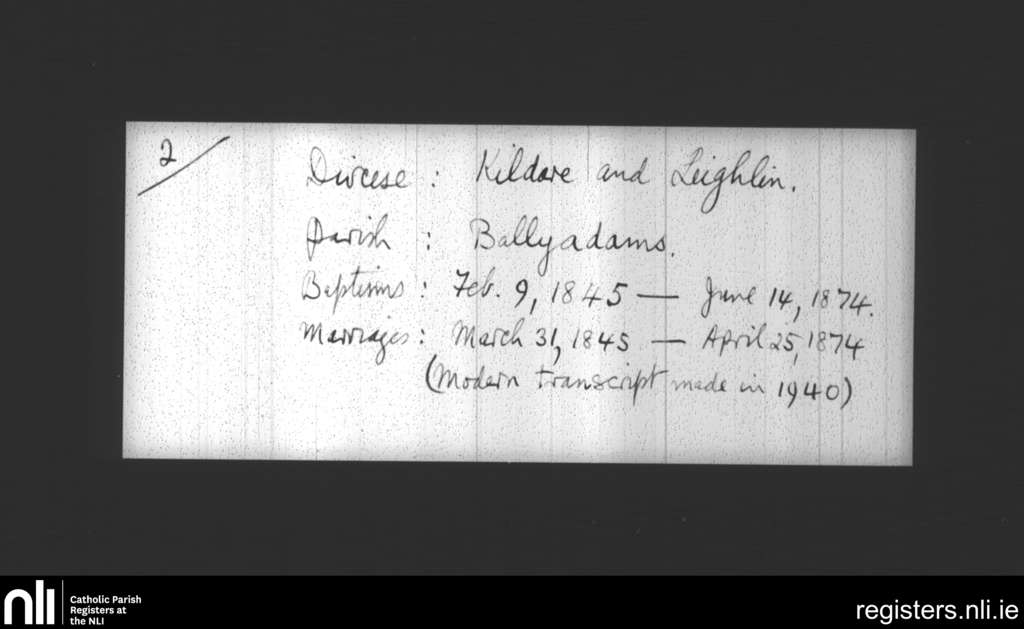 2/
Diocese : Kildare and Leighlin.
Parish : Ballyadams.
Baptisms : Feb. 9, 1845 — June 14, 1874.
Marriages : March 31, 1845 — April 25, 1874
(Modern transcript made in 1940)
nli
Catholic Parish
Registers at
the NLI
registers.nli.ie